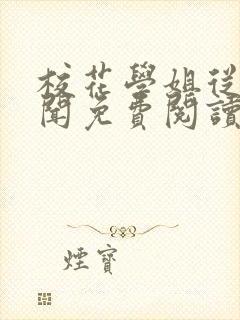 校花學姐從
聞免費閱讀
煙寶